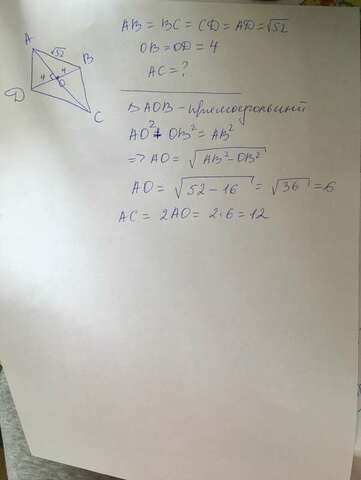 A
√52
B
4
4
O
D
C
AB = BC = CD = AD = √52
OB = OD = 4
AC = ?
ΔAOB - прямоугольный
AO² + OB² = AB²
=> AO = √AB² - OB²
AO = √52 - 16 = √36 = 6
AC = 2AO = 2·6 = 12